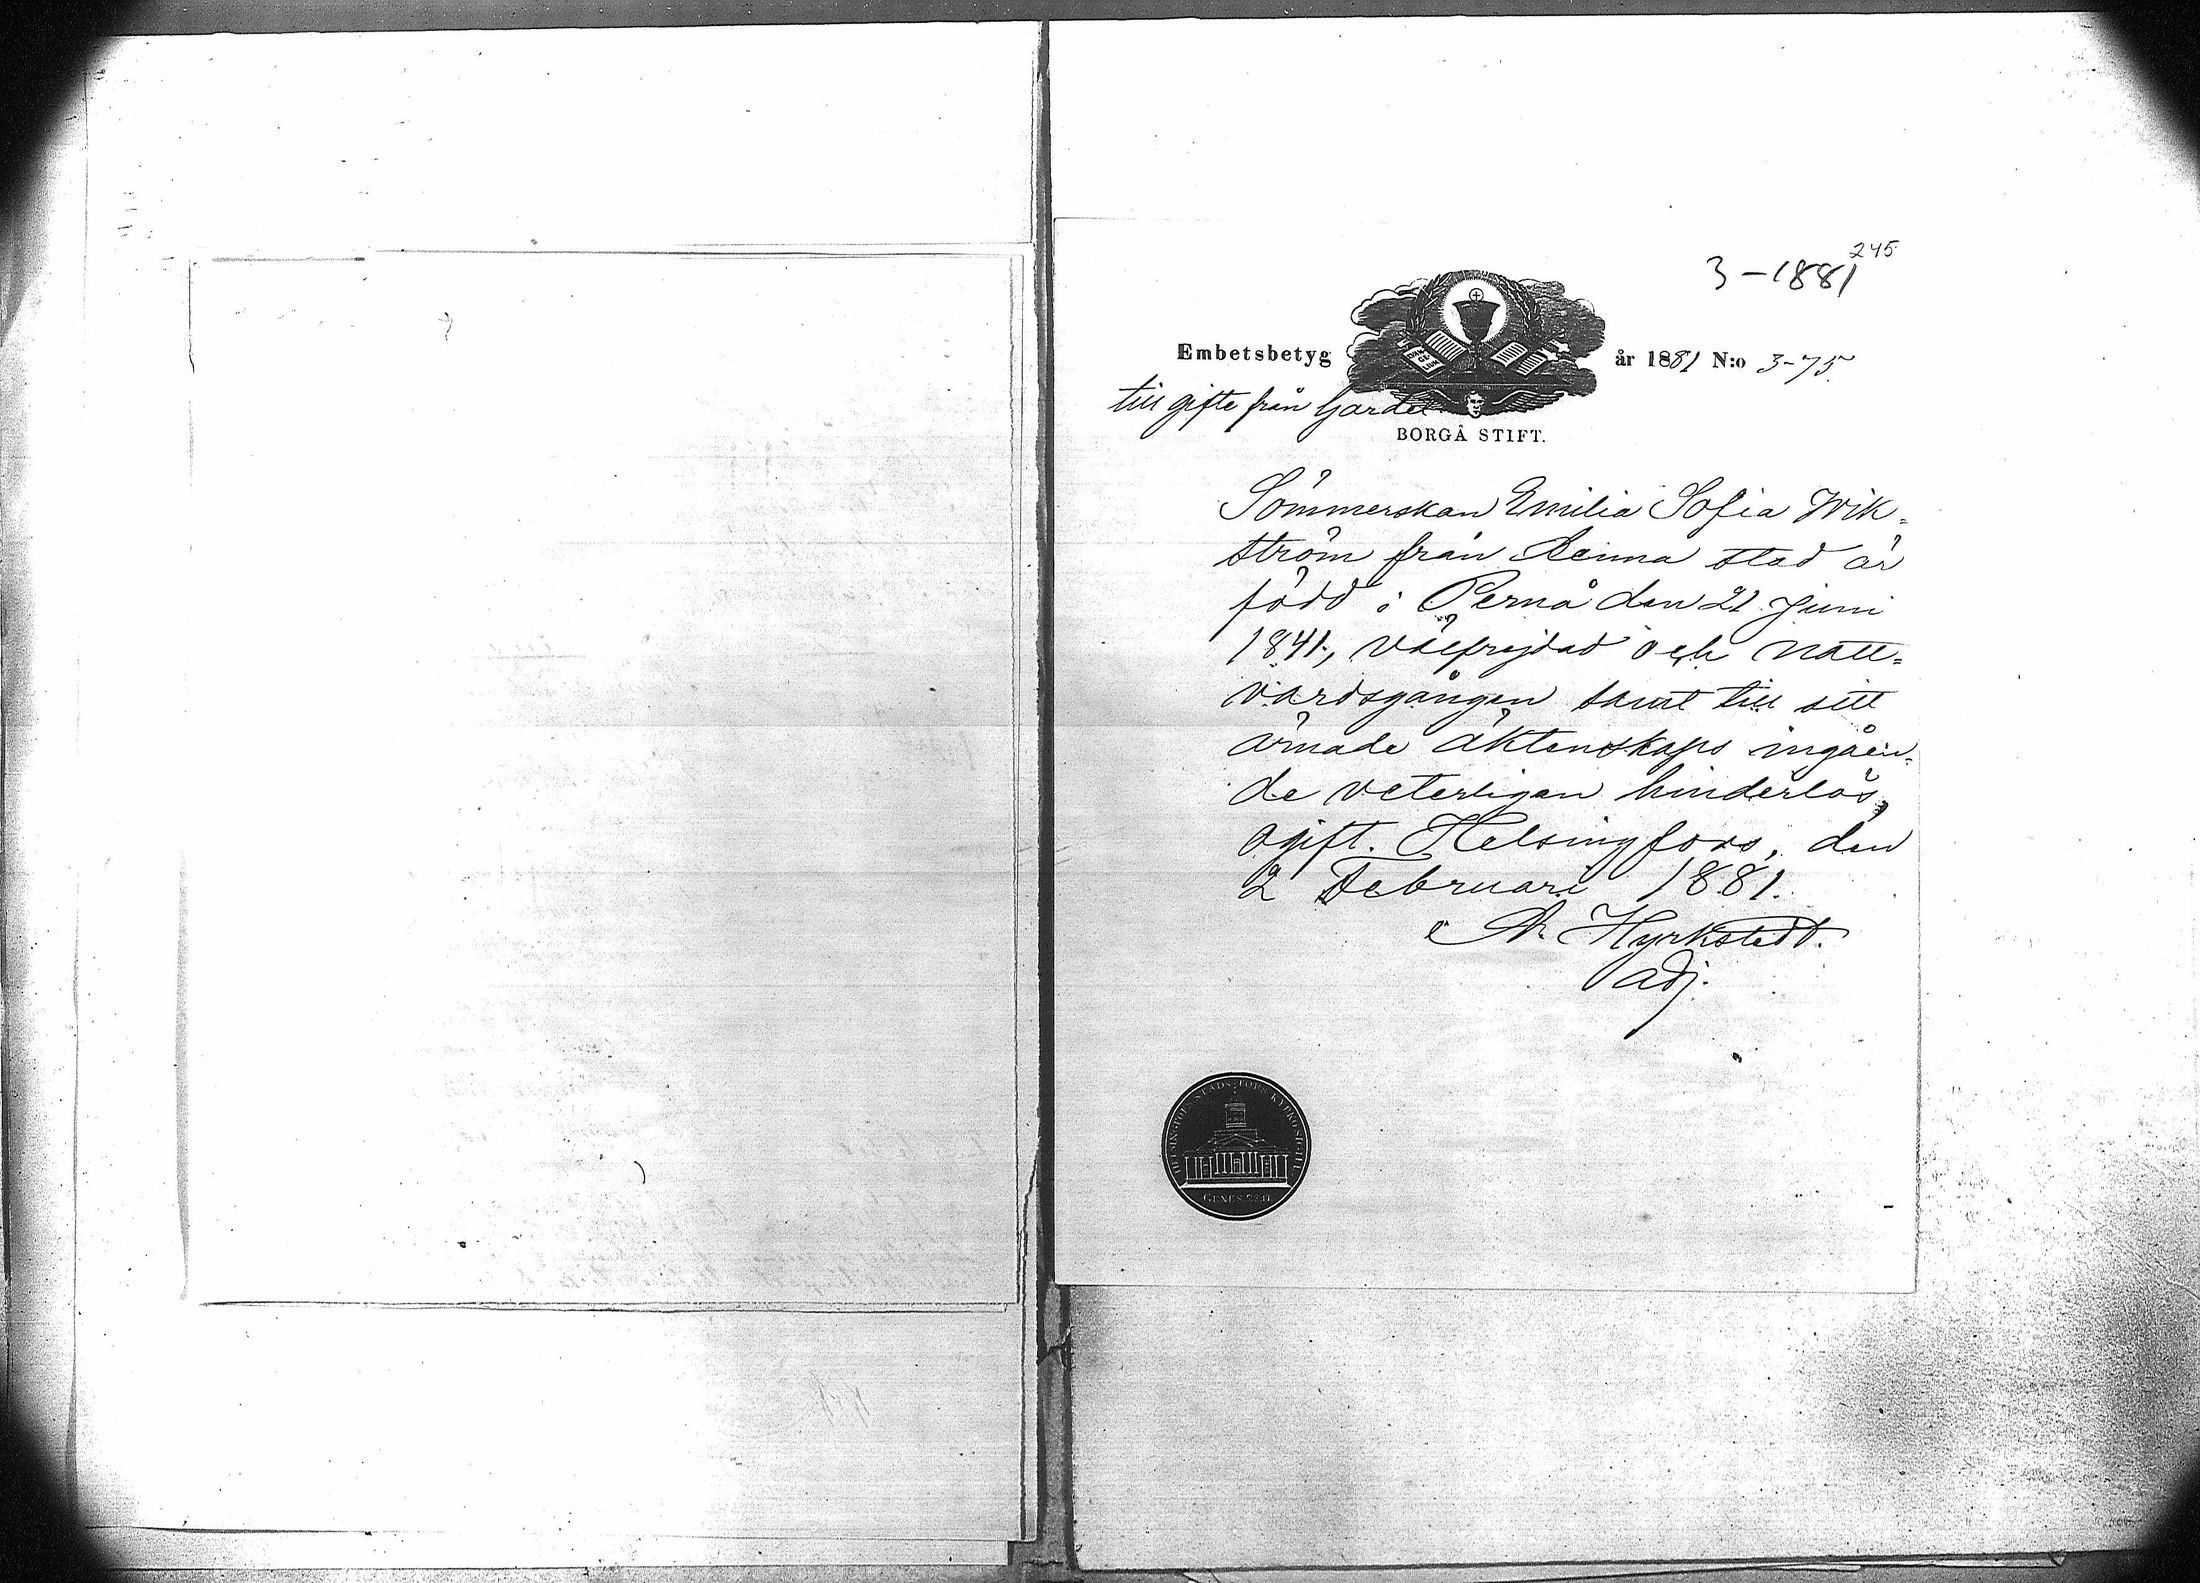 245
3-1881
Embetsbetyg år 1881 N:o 3-75.
till gifte från Gardet
BORGÅ STIFT.
Sömmerskan Emilia Sofia Wik=
ström från denna stad är
född i Pernå den 21 Juni
1841, välfrejdad och natt=
vardsgången samt till sitt
ärnade äktenskaps ingåen=
de veterligen hinderlös,
ogift. Helsingfors, den
2 Februari 1881.
Hyrkstedt.
adj.
HELSINGFORS STADS FÖRS. KYRKOSIGILL
GENES. 28.17.